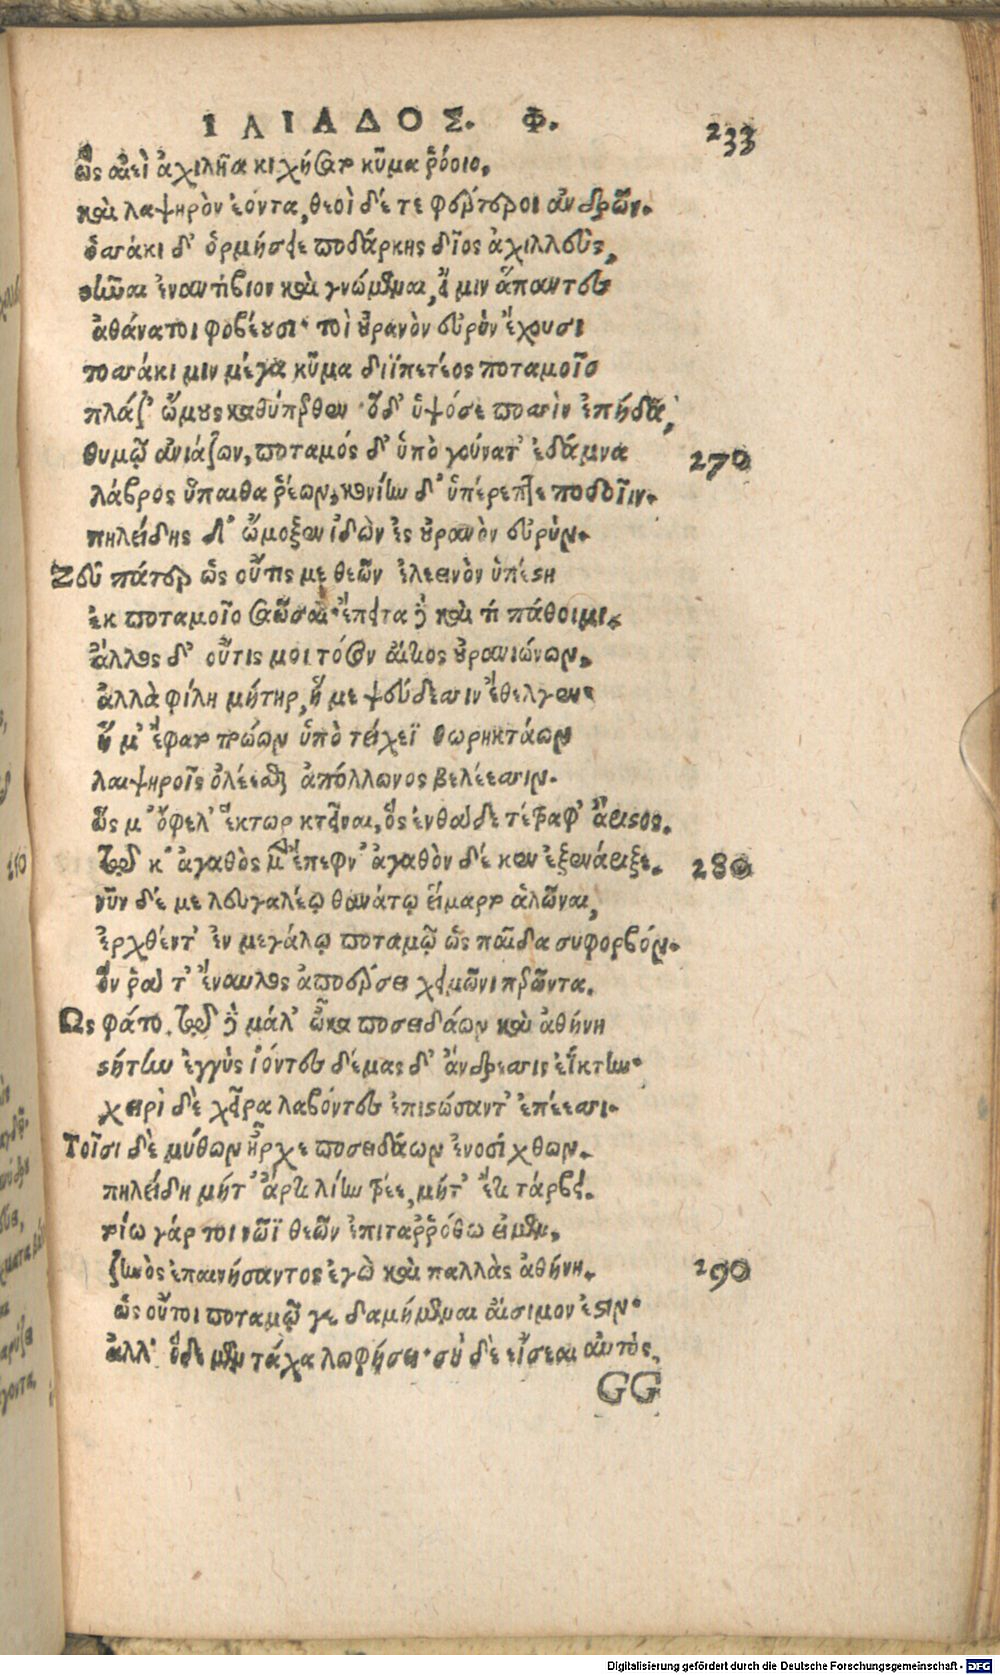 ΙΛΙΑΔΟΣ. Φ.
233
ὣς αἰεὶ ἀχιλῆα κιχήσατο κῦμα ῥόοιο,
καὶ λαιψηρὸν ἐόντα, θεοὶ δέ τε φέρτεροι ἀνδρῶν.
ὁσσάκι δ' ὁρμήσειε ποδάρκης δῖος ἀχιλλεὺς,
στῆναι ἐναντίβιον καὶ γνώμεναι, εἴ μιν ἅπαντες
ἀθάνατοι φοβέουσι· τοὶ οὐρανὸν εὐρὺν ἔχουσι
τοσσάκι μιν μέγα κῦμα διϊπετέος ποταμοῖο
πλάζ' ὤμους καθύπερθεν· ὁ δ' ὑψόσε ποσσὶν ἐπήδα,
θυμῷ ἀνιάζων, ποταμός δ' ὑπὸ γούνατ' ἐδάμνα
270
λάβρος ὕπαιθα ῥέων, κονίην δ' ὑπέρεπτε ποδοῖιν.
πηλείδης δ' ᾤμοξεν ἰδὼν ἐς οὐρανὸν εὐρύν.
Ζεῦ πάτερ ὡς οὔτις με θεῶν ἐλεεινὸν ὑπέστη
ἐκ ποταμοῖο σαῶσαι· ἔπειτα δὲ καὶ τὶ πάθοιμι.
ἄλλος δ' οὔτις μοι τόσον αἴτιος οὐρανιώνων,
ἀλλὰ φίλη μήτηρ, ἥ με ψεύδεσσιν ἔθελγεν·
ἥ μ' ἔφατο τρώων ὑπὸ τείχεϊ θωρηκτάων
λαιψηροῖς ὀλέεσθαι ἀπόλλωνος βελέεσσιν.
ὥς μ' ὄφελ' ἕκτωρ κτεῖναι, ὃς ἐνθάδε τέτραφ' ἄριστος.
τῷ κ' ἀγαθὸς μὲν ἔπεφν' ἀγαθὸν δέ κεν ἐξενάριξε.
280
νῦν δέ με λευγαλέῳ θανάτῳ εἵμαρτο ἁλῶναι,
ἐρχθέντ' ἐν μεγάλῳ ποταμῷ ὡς παῖδα συφορβόν.
ὅν ῥά τ' ἔναυλος ἀποέρσει χειμῶνι περῶντα.
Ὣς φάτο. τῷ δὲ μάλ' ὦκα ποσειδάων καὶ ἀθήνη
στήτην ἐγγὺς ἰόντες δέμας δ' ἄνδρεσσις ἐΐκτην·
χειρὶ δὲ χεῖρα λαβόντες ἐπιστώσαντ' ἐπέεσσι.
Τοῖσι δὲ μύθων ἦρχε ποσειδάων ἐνοσίχθων.
πηλείδη μήτ' ἄρ τι λίην τρέε, μήτ' ἔτι τάρβει.
τοίω γάρ τοι νῶϊ θεῶν ἐπιταῤῥόθω εἰμέν,
ζηνὸς ἐπαινήσαντος ἐγὼ καὶ παλλὰς ἀθήνη.
290
ὡς οὔτοι ποταμῷ γε δαμήμεναι αἴσιμον ἐστιν·
ἀλλ' ὅδε μὲν τάχα λωφήσει· σὺ δὲ εἴσεαι αὐτός.
GG
Digitalisierung gefördert durch die Deutsche Forschungsgemeinschaft - DFG